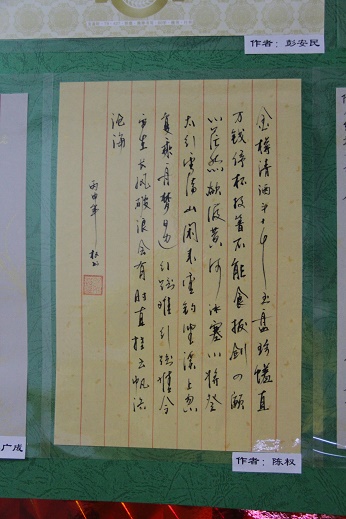 作者：彭安民
金樽清酒斗十千玉盘珍馐直
万钱停杯投箸不能食拔剑四顾
心茫然欲渡黄河冰塞川将登
太行雪满山闲来垂钓碧溪上忽
复乘舟梦日边行路难行路难今
安在长风破浪会有时直挂云帆济
沧海
丙申年
广成
作者：陈权